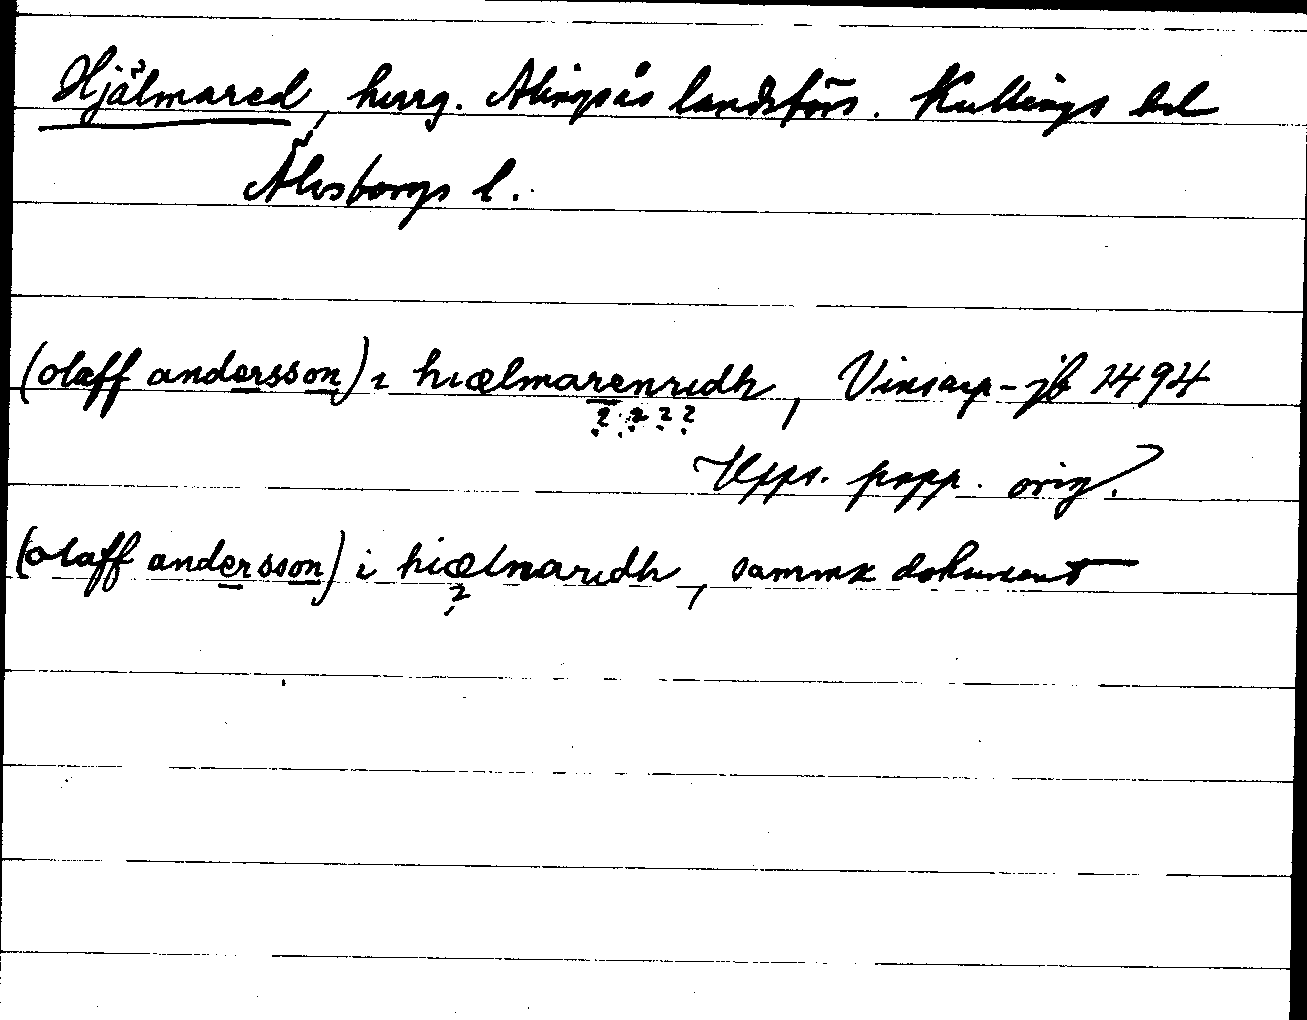 Hjälmared, herrg. Alingsås landsförs. Kullings hd
Älvsborgs l.
(olaff andersson) ı hıælmarenrıdh, Vinsarp-jb 1494
? ? ? ?
Upps. papp. orig.
(olaff andersson) i hiælmarıdh, samma dokument
?